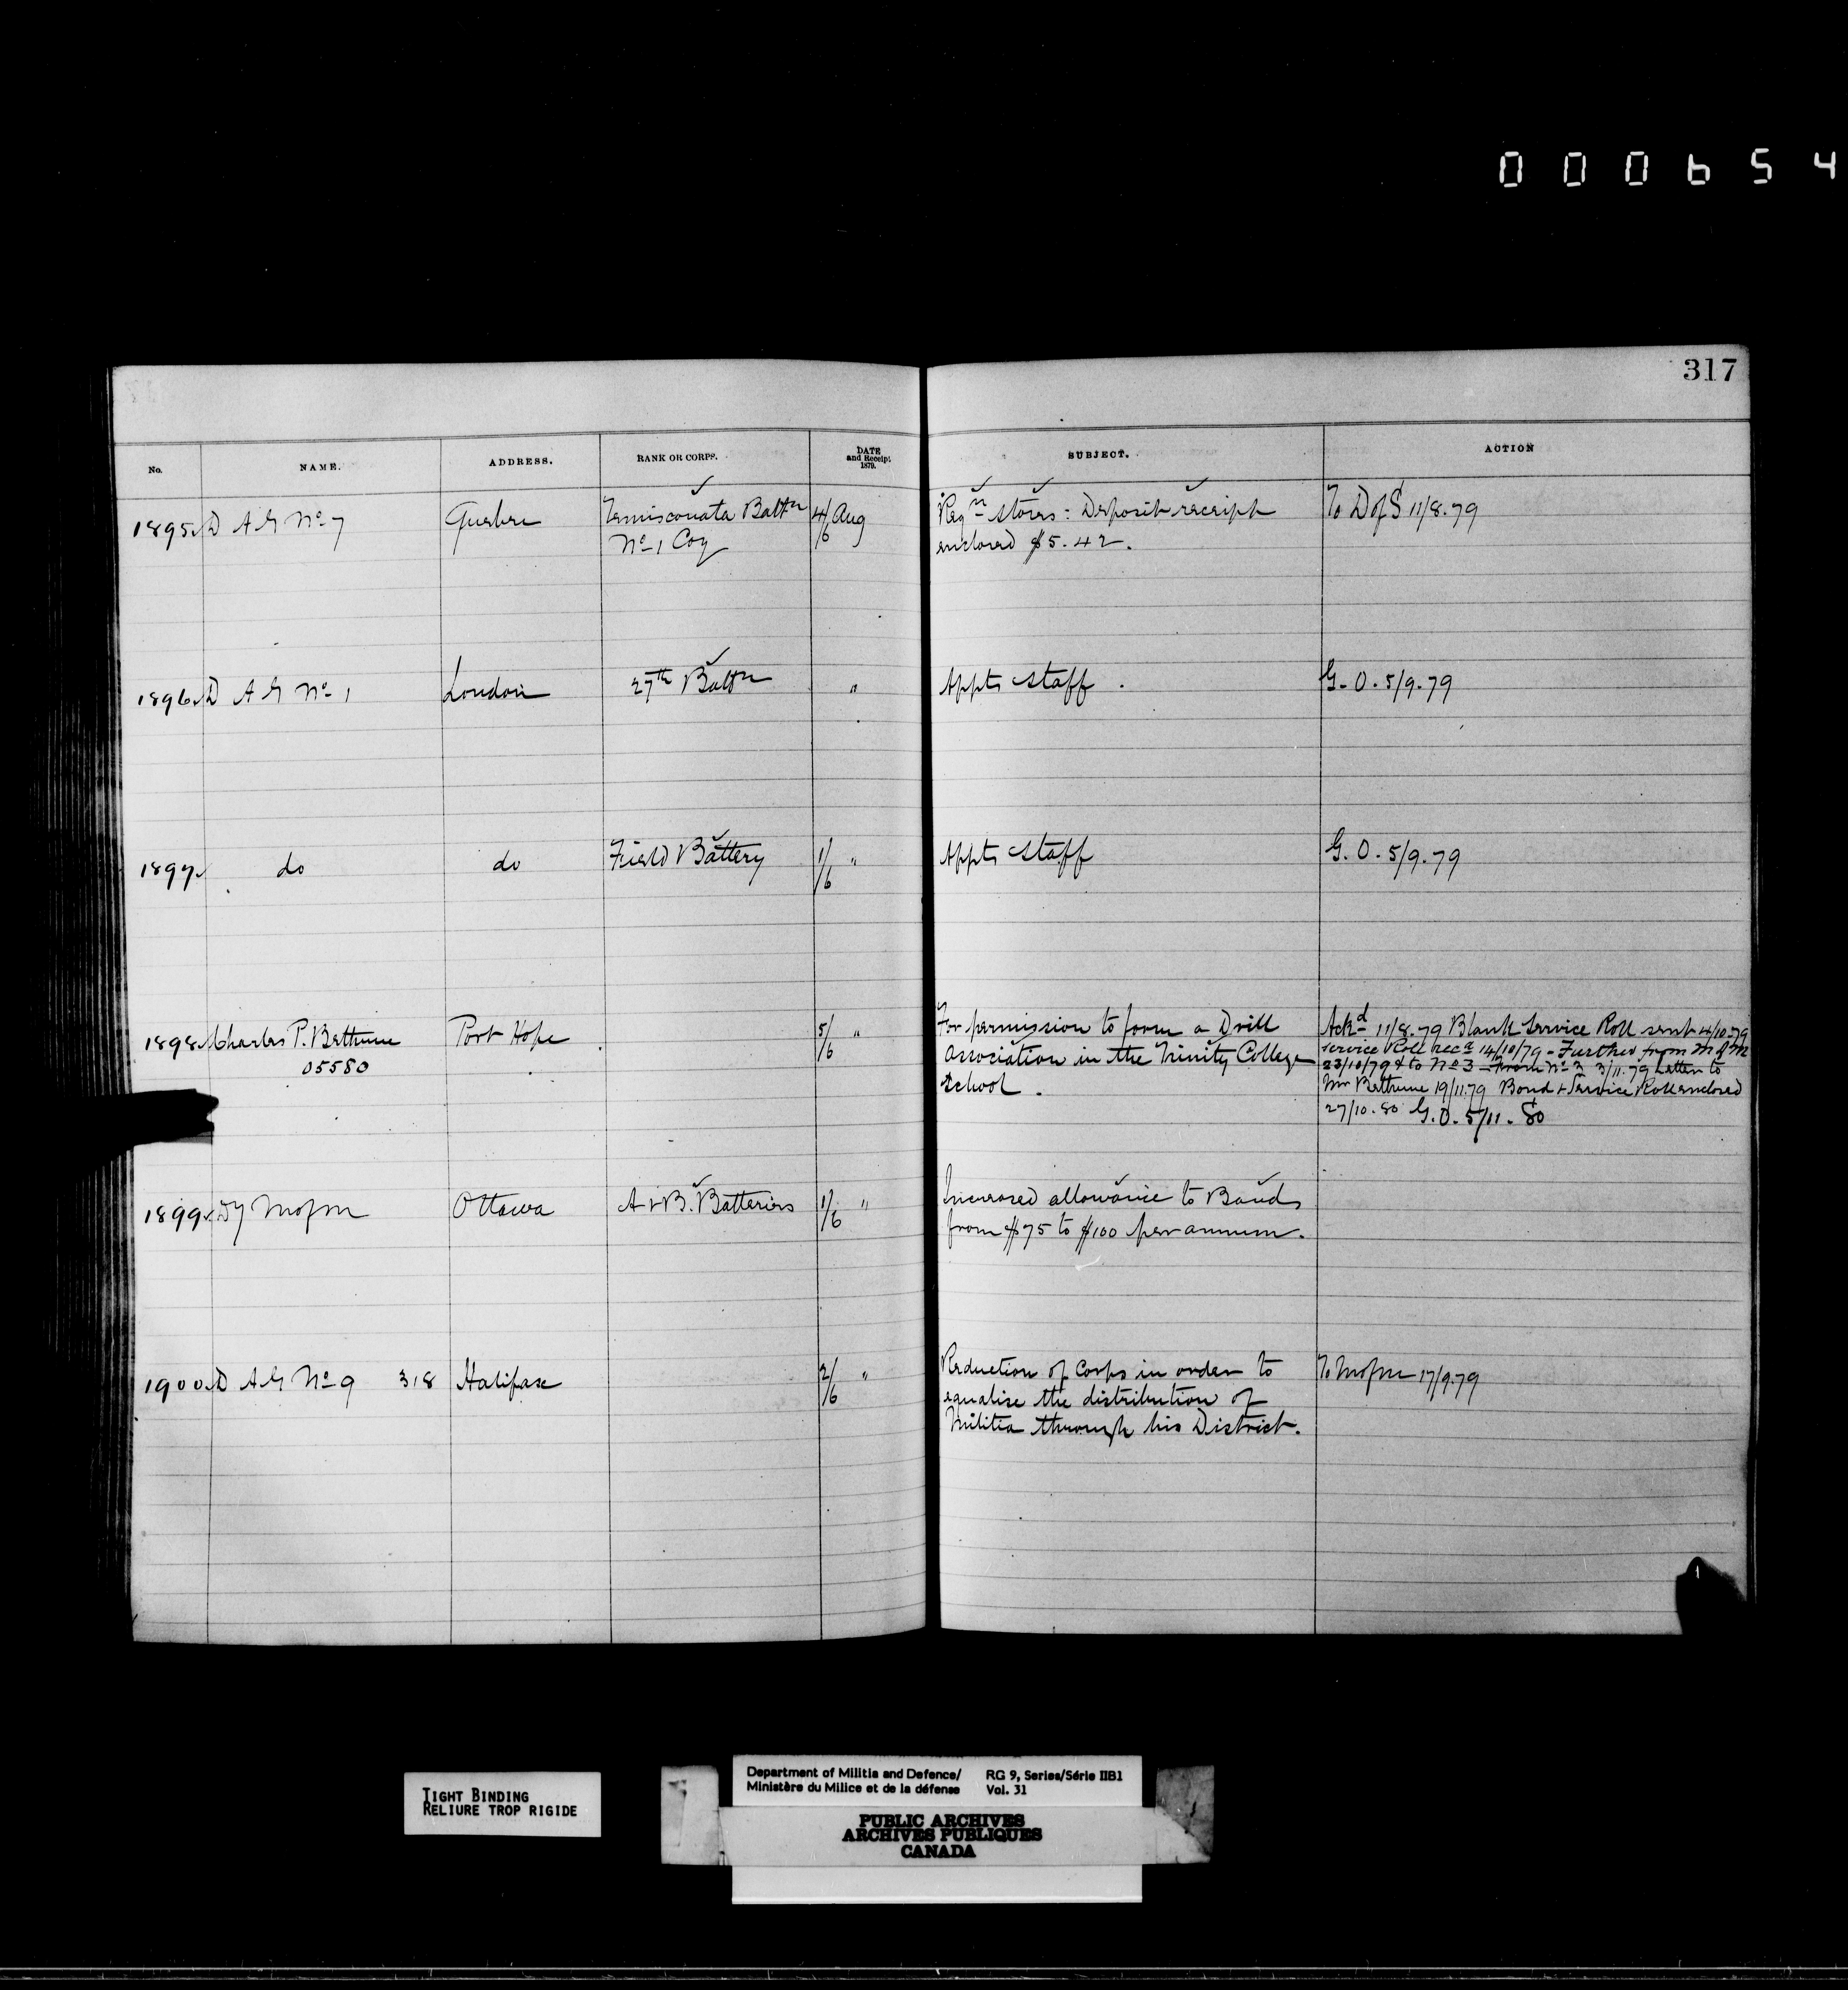 000654
317
No. NAME. ADDRESS. RANK OR CORPS. DATE and Receipt. 1879. SUBJECT. ACTION
1895 D A G No 7 Quebec Temiscouata Battn 4/6 Aug Reqn Stores: Deposit receipt To D of S 11/8.79
No 1 Coy enclosed $5.42.
1896 D A G No 1 London 27th Battn " Appts Staff. G.O. 5/9.79
1897 do do Field Battery 1/6 " Appts Staff G.O. 5/9.79
1898 Charles P. Bethune Port Hope 5/6 " For permission to form a Drill Ackd 11/8.79 Blank Service Roll sent 4/10.79
05580 Association in the Trinity College Service Roll recd 14/10/79 - Further from M of M
School. 23/10/79 & to No 3 - From No 3 3/11.79 Letter to
Mr Bethune 19/11.79 Bond & Service Roll enclosed
27/10.80 G.O. 5/11.80
1899 Dy M of M Ottawa A & B. Batteries 1/6 " Increased allowance to Bands
from $75 to $100 per annum.
1900 D A G No 9 318 Halifax 2/6 " Reduction of Corps in order to To M of M 17/9.79
equalise the distribution of
Militia through his District.
TIGHT BINDING
RELIURE TROP RIGIDE
Department of Militia and Defence/ RG 9, Series/Série IIB1
Ministère du Milice et de la défense Vol. 31
PUBLIC ARCHIVES
ARCHIVES PUBLIQUES
CANADA